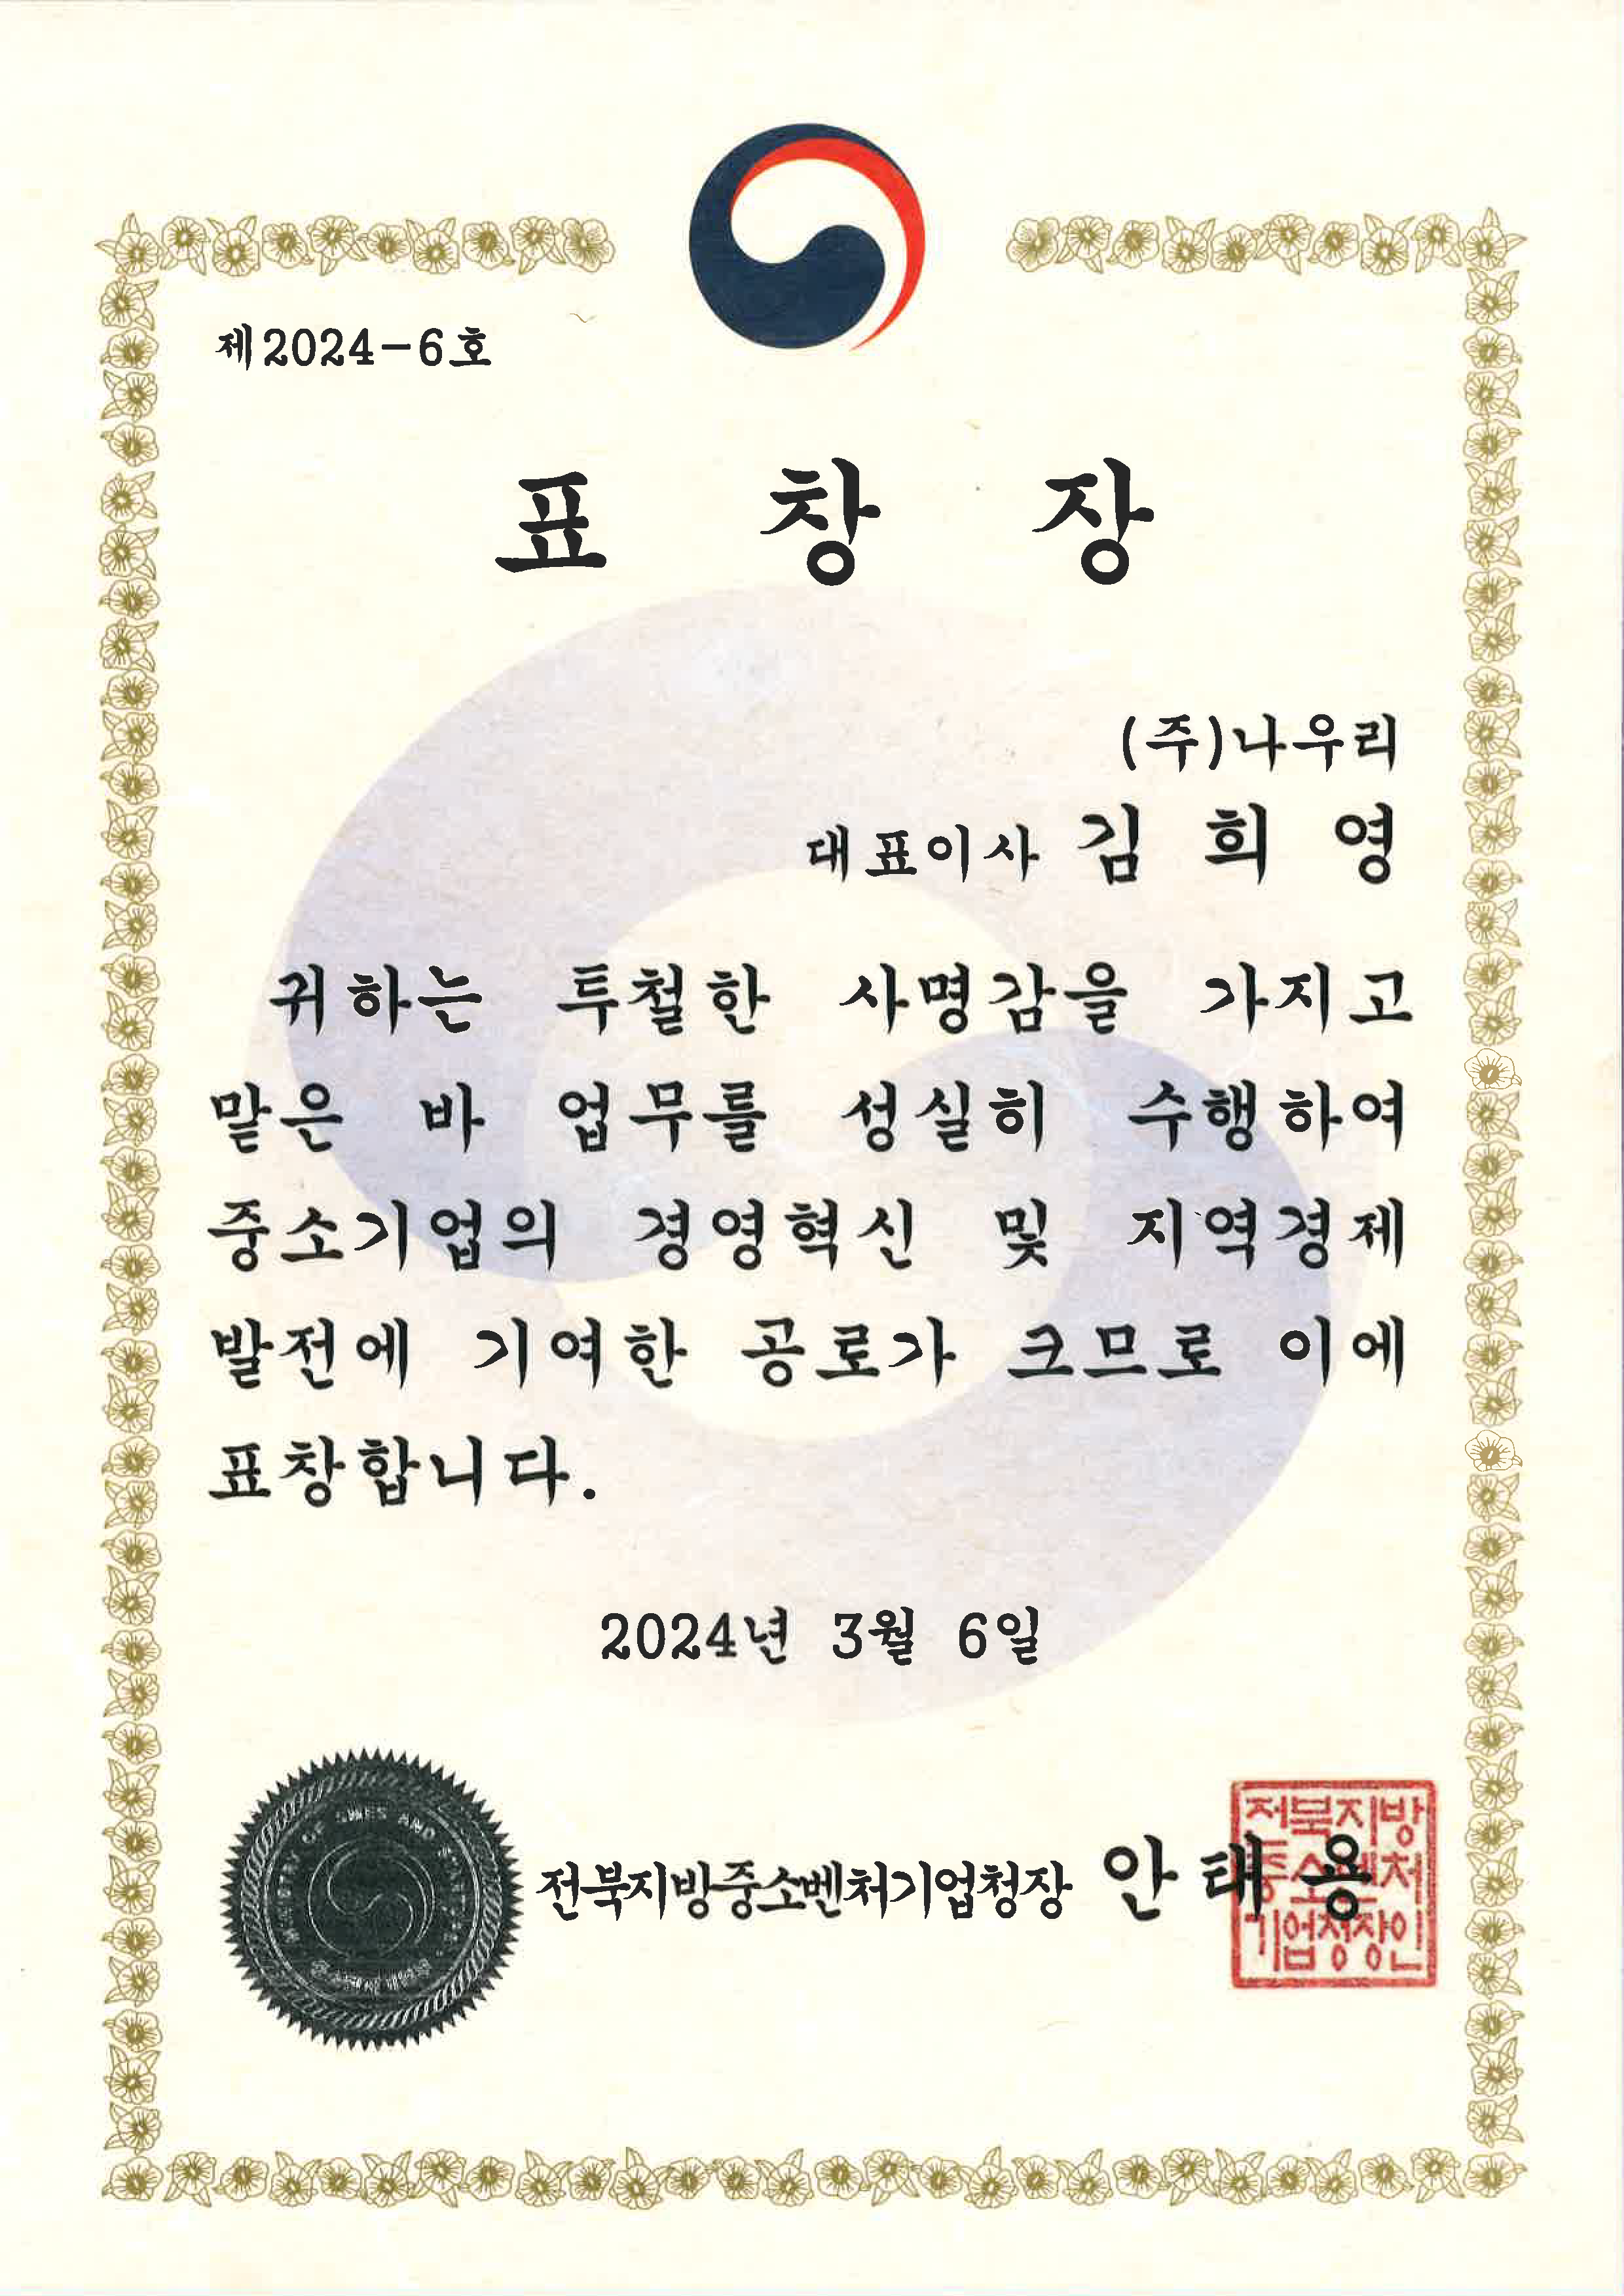 제2024-6호
표 창 장
(주)나우리
대표이사 김 희 영
귀하는 투철한 사명감을 가지고
맡은 바 업무를 성실히 수행하여
중소기업의 경영혁신 및 지역경제
발전에 기여한 공로가 크므로 이에
표창합니다.
2024년 3월 6일
MINISTRY OF SMES AND STARTUPS
전북지방중소벤처기업청장 안 태 용
전북지방
중소벤처
기업청장인